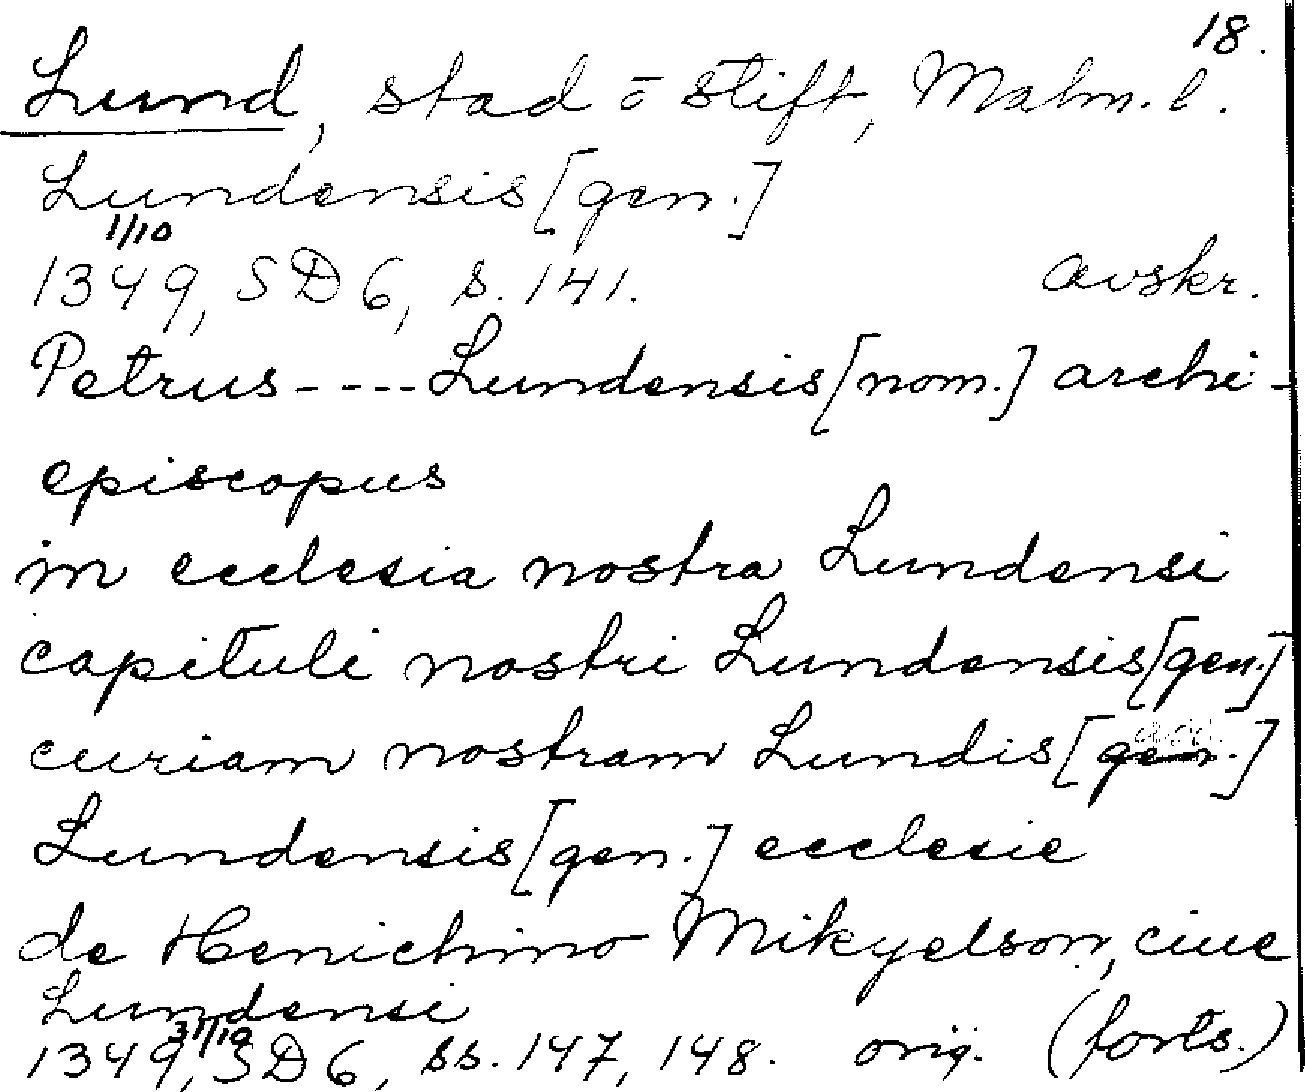 18.
Lund, stad o stift, Malm. l.
Lundensis [gen.]
1/10
1349, SD 6, s. 141. avskr.
Petrus ---- Lundensis [nom.] archi-
episcopus
in ecclesia nostra Lundensi
capituli nostri Lundensis [gen.]
curiam nostram Lundis []
Lundensis [gen.] ecclesie
de Henichino Mikyelson, ciue
Lundensi
31/10
1349, SD 6, ss. 147, 148. orig. (forts.)